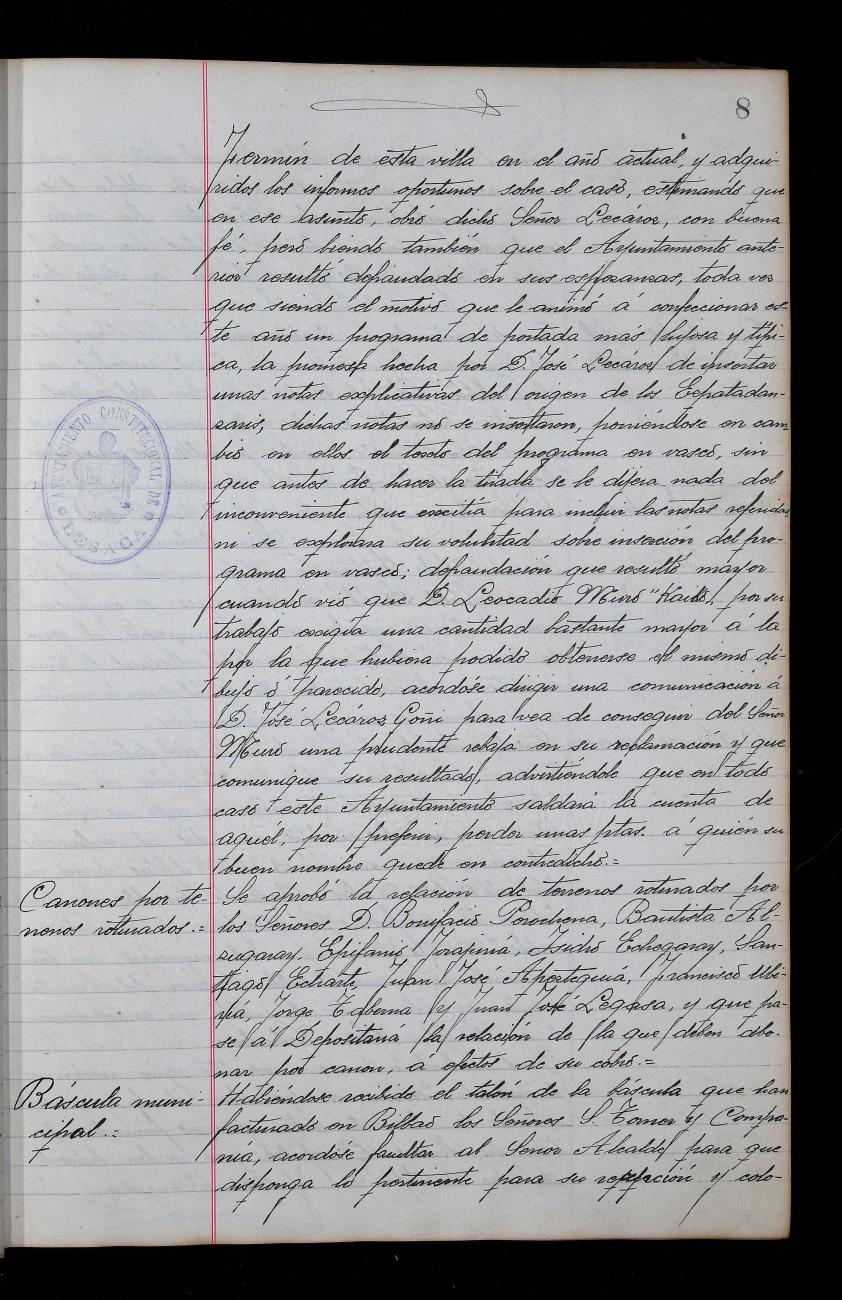 8
Fermín de esta villa en el año actual, y adqui-
ridos los informes oportunos sobre el caso, estimando que
en ese asunto, obró dicho Señor Lecároz, con buena
fé, pero biendo también que el Ayuntamiento ante-
rior resultó defraudado en sus esperanzas, toda vez
que siendo el motivo que le animó á confeccionar es-
te año un programa de portada más lujosa y típi-
ca, la promesa hecha por D. José Lecároz de insertar
unas notas explicativas del origen de los Ezpatadan-
zaris, dichas notas no se insertaron, poniéndose en cam
bio en ellos el texto del programa en vasco, sin
que antes de hacer la tirada se le dijera nada del
inconveniente que existía para incluir las notas referidas,
ni se explorara su voluntad sobre inserción del pro-
grama en vasco; defraudación que resultó mayor
cuando vió que D. Leocadio Muro "Kaito", por su
trabajo exigía una cantidad bastante mayor á la
por la que hubiera podido obtenerse el mismo di-
bujo ó parecido, acordóse dirigir una comunicación á
D. José Lecároz Goñi para vea de conseguir del Señor
Muro una prudente rebaja en su reclamación y que
comunique su resultado, advirtiéndole que en todo
caso este Ayuntamiento saldará la cuenta de
aquél, por preferir, perder unas ptas. á quién su
buen nombre quede en contredicho.=
Canones por te-
rrenos roturados.=
Se aprobó la relación de terrenos roturados por
los Señores D. Bonifacio Perochena, Bautista Al-
zugaray, Epifanio Jorajuria, Isidro Echegaray, San-
tiago Echarte, Juan José Apezteguia, Francisco Ubi-
ria, Jorge Taberna y Juan José Legasa, y que pa-
se á Depositaría la relación de la que deben abo-
nar por canon, á efectos de su cobro.=
Báscula muni-
cipal.=
Habiéndose recibido el talón de la báscula que han
facturado en Bilbao los Señores S. Torner y Compa-
nía, acordóse facultar al Senor Alcalde para que
disponga lo pertinente para su recepción y colo-
AYUNTAMIENTO CONSTITUCIONAL DE
LESACA